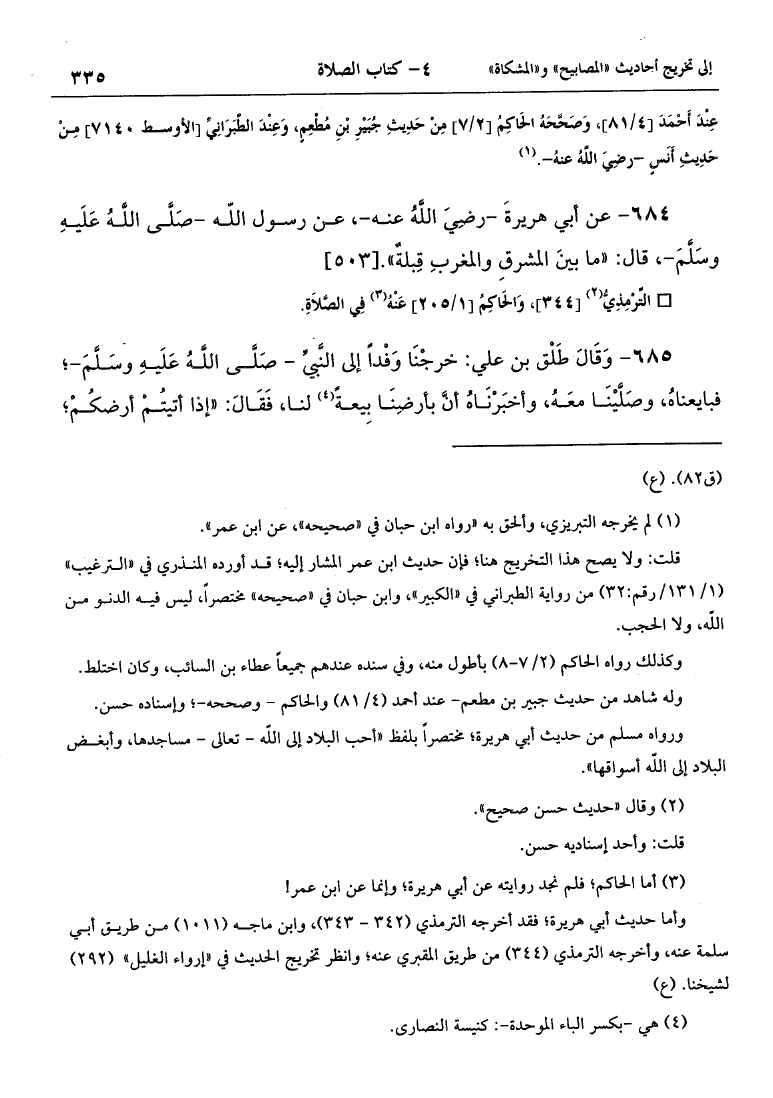 إلى تخريج أحاديث «المصابيح» و«المشكاة» ٤- كتاب الصلاة ٣٣٥
عِنْدَ أَحْمَدَ [٨١/٤]، وَصَحَّحَهُ الحَاكِمُ [٧/٢] مِنْ حَدِيثِ جُبَيْرِ بْنِ مُطْعِمٍ، وَعِنْدَ الطَّبَرَانِيِّ [الأوسط ٧١٤٠] مِنْ
حَدِيثِ أَنَسٍ -رضِيَ اللَّهُ عنهُ-.(١)
٦٨٤- عن أبي هريرةَ -رضِيَ اللَّهُ عنه-، عن رسول اللّه -صَلَّى اللَّهُ عَلَيهِ
وسَلَّمَ-، قال: «ما بينَ المشرقِ والمغربِ قِبلةٌ».[٥٠٣]
□ التِّرْمِذِيُّ(٢) [٣٤٤]، وَالحَاكِمُ [٢٠٥/١] عَنْهُ(٣) فِي الصَّلاَةِ.
٦٨٥- وَقَالَ طَلْق بن علي: خرجْنَا وَفْداً إلى النَّبِيِّ - صَلَّى اللَّهُ عَلَيهِ وسَلَّمَ-؛
فبايعناهُ، وصَلَّيْنَا معَهُ، وأخبَرْنَاهُ أنَّ بأرضِنَا بِيعةً(٤) لنا، فَقَالَ: «إذا أتيتُمْ أرضكُمْ؛
(ق٨٢). (ع)
(١) لم يخرجه التبريزي، وألحق به «رواه ابن حبان في «صحيحه»، عن ابن عمر».
قلت: ولا يصح هذا التخريج هنا؛ فإن حديث ابن عمر المشار إليه؛ قد أورده المنذري في «الترغيب»
(١/ ١٣١/ رقم:٣٢) من رواية الطبراني في «الكبير»، وابن حبان في «صحيحه» مختصراً، ليس فيه الدنو من
اللّه، ولا الحجب.
وكذلك رواه الحاكم (٢/ ٧-٨) بأطول منه، وفي سنده عندهم جميعاً عطاء بن السائب، وكان اختلط.
وله شاهد من حديث جبير بن مطعم- عند أحمد (٤/ ٨١) والحاكم - وصححه-؛ وإسناده حسن.
ورواه مسلم من حديث أبي هريرة؛ مختصراً بلفظ «أحب البلاد إلى اللّه - تعالى - مساجدها، وأبغض
البلاد إلى اللّه أسواقها».
(٢) وقال «حديث حسن صحيح».
قلت: وأحد إسناديه حسن.
(٣) أما الحاكم؛ فلم نجد روايته عن أبي هريرة؛ وإنما عن ابن عمر!
وأما حديث أبي هريرة؛ فقد أخرجه الترمذي (٣٤٢ - ٣٤٣)، وابن ماجه (١٠١١) من طريق أبي
سلمة عنه، وأخرجه الترمذي (٣٤٤) من طريق المقبري عنه؛ وانظر تخريج الحديث في «إرواء الغليل» (٢٩٢)
لشيخنا. (ع)
(٤) هي -بكسر الباء الموحدة-: كنيسة النصارى.